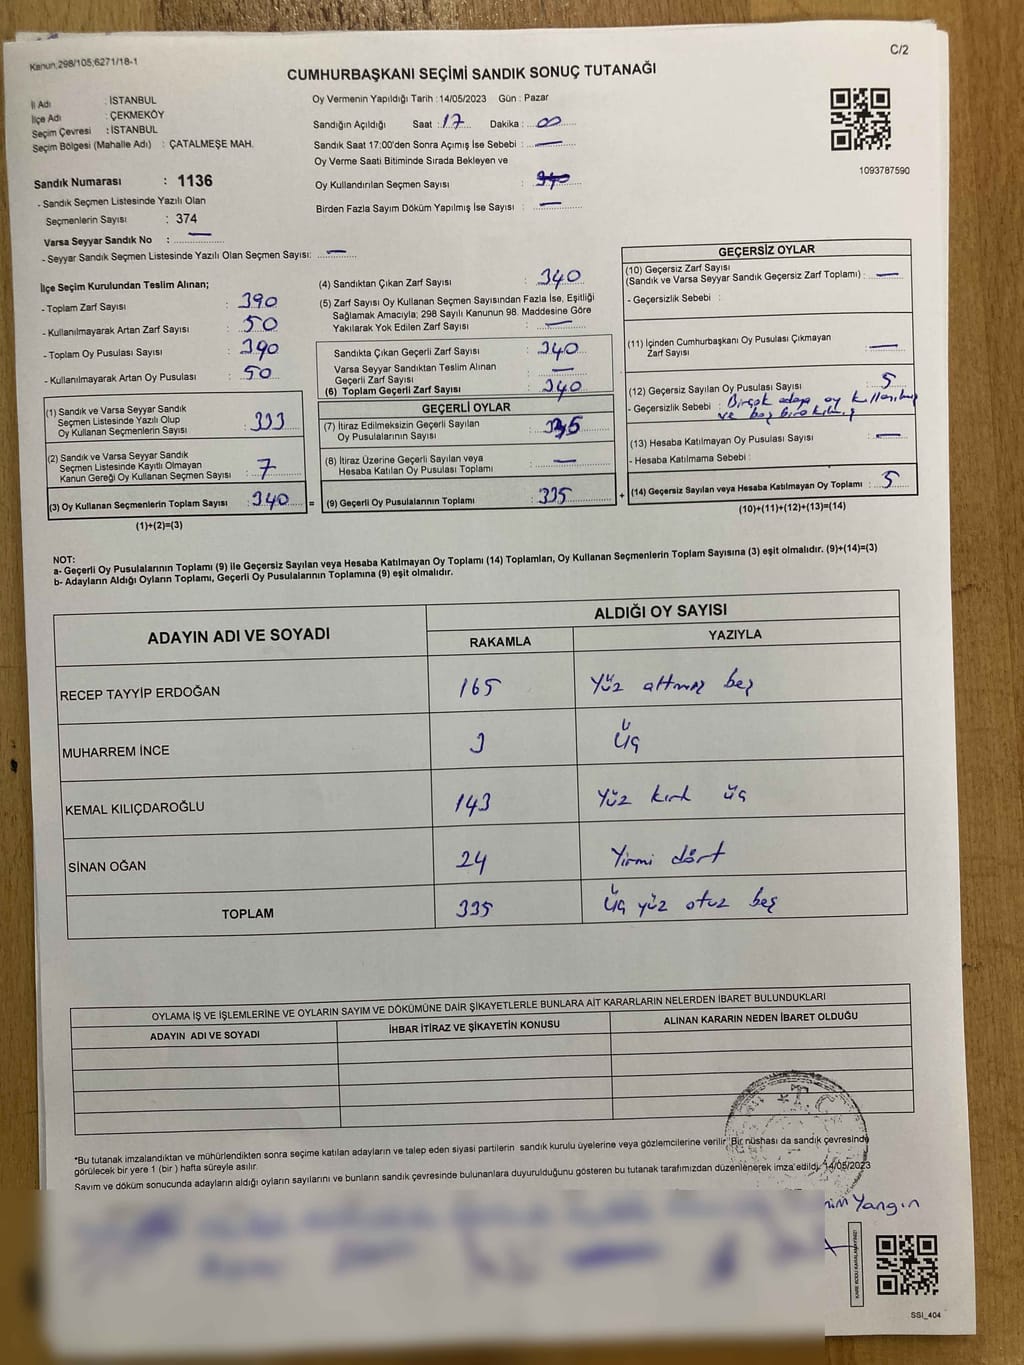 Kanun;298/105;6271/18-1
C/2
CUMHURBAŞKANI SEÇİMİ SANDIK SONUÇ TUTANAĞI
İl Adı : İSTANBUL
İlçe Adı : ÇEKMEKÖY
Seçim Çevresi : İSTANBUL
Seçim Bölgesi (Mahalle Adı) : ÇATALMEŞE MAH.
Sandık Numarası : 1136
- Sandık Seçmen Listesinde Yazılı Olan
Seçmenlerin Sayısı : 374
Varsa Seyyar Sandık No : —
- Seyyar Sandık Seçmen Listesinde Yazılı Olan Seçmen Sayısı: —
Oy Vermenin Yapıldığı Tarih : 14/05/2023 Gün : Pazar
Sandığın Açıldığı Saat : 17 Dakika : 00
Sandık Saat 17:00'den Sonra Açımış İse Sebebi : —
Oy Verme Saati Bitiminde Sırada Bekleyen ve
Oy Kullandırılan Seçmen Sayısı : 340
Birden Fazla Sayım Döküm Yapılmış İse Sayısı : —
1093787590
İlçe Seçim Kurulundan Teslim Alınan;
- Toplam Zarf Sayısı : 390
- Kullanılmayarak Artan Zarf Sayısı : 50
- Toplam Oy Pusulası Sayısı : 390
- Kullanılmayarak Artan Oy Pusulası : 50
(1) Sandık ve Varsa Seyyar Sandık
Seçmen Listesinde Yazılı Olup
Oy Kullanan Seçmenlerin Sayısı : 333
(2) Sandık ve Varsa Seyyar Sandık
Seçmen Listesinde Kayıtlı Olmayan
Kanun Gereği Oy Kullanan Seçmen Sayısı : 7
(3) Oy Kullanan Seçmenlerin Toplam Sayısı : 340 =
(1)+(2)=(3)
(4) Sandıktan Çıkan Zarf Sayısı : 340
(5) Zarf Sayısı Oy Kullanan Seçmen Sayısından Fazla İse, Eşitliği
Sağlamak Amacıyla; 298 Sayılı Kanunun 98. Maddesine Göre
Yakılarak Yok Edilen Zarf Sayısı : —
Sandıkta Çıkan Geçerli Zarf Sayısı : 340
Varsa Seyyar Sandıktan Teslim Alınan
Geçerli Zarf Sayısı : —
(6) Toplam Geçerli Zarf Sayısı : 340
GEÇERLİ OYLAR
(7) İtiraz Edilmeksizin Geçerli Sayılan
Oy Pusulalarının Sayısı : 335
(8) İtiraz Üzerine Geçerli Sayılan veya
Hesaba Katılan Oy Pusulası Toplamı : —
(9) Geçerli Oy Pusulalarının Toplamı : 335 +
GEÇERSİZ OYLAR
(10) Geçersiz Zarf Sayısı
(Sandık ve Varsa Seyyar Sandık Geçersiz Zarf Toplamı) : —
- Geçersizlik Sebebi :
(11) İçinden Cumhurbaşkanı Oy Pusulası Çıkmayan
Zarf Sayısı : —
(12) Geçersiz Sayılan Oy Pusulası Sayısı : 5
- Geçersizlik Sebebi : Birçok adaya oy
ve boş
(13) Hesaba Katılmayan Oy Pusulası Sayısı : —
- Hesaba Katılmama Sebebi :
(14) Geçersiz Sayılan veya Hesaba Katılmayan Oy Toplamı : 5
(10)+(11)+(12)+(13)=(14)
NOT:
a- Geçerli Oy Pusulalarının Toplamı (9) ile Geçersiz Sayılan veya Hesaba Katılmayan Oy Toplamı (14) Toplamları, Oy Kullanan Seçmenlerin Toplam Sayısına (3) eşit olmalıdır. (9)+(14)=(3)
b- Adayların Aldığı Oyların Toplamı, Geçerli Oy Pusulalarının Toplamına (9) eşit olmalıdır.
ADAYIN ADI VE SOYADI
ALDIĞI OY SAYISI
RAKAMLA YAZIYLA
RECEP TAYYİP ERDOĞAN 165 Yüz altmış beş
MUHARREM İNCE 3 Üç
KEMAL KILIÇDAROĞLU 143 Yüz kırk üç
SİNAN OĞAN 24 Yirmi dört
TOPLAM 335 Üç yüz otuz beş
OYLAMA İŞ VE İŞLEMLERİNE VE OYLARIN SAYIM VE DÖKÜMÜNE DAİR ŞİKAYETLERLE BUNLARA AİT KARARLARIN NELERDEN İBARET BULUNDUKLARI
ADAYIN ADI VE SOYADI İHBAR İTİRAZ VE ŞİKAYETİN KONUSU ALINAN KARARIN NEDEN İBARET OLDUĞU
T.C.
*Bu tutanak imzalandıktan ve mühürlendikten sonra seçime katılan adayların ve talep eden siyasi partilerin sandık kurulu üyelerine veya gözlemcilerine verilir. Bir nüshası da sandık çevresinde
görülecek bir yere 1 (bir ) hafta süreyle asılır.
Sayım ve döküm sonucunda adayların aldığı oyların sayılarını ve bunların sandık çevresinde bulunanlara duyurulduğunu gösteren bu tutanak tarafımızdan düzenlenerek imza edildi. 14/05/2023
Yangın
SSI_404